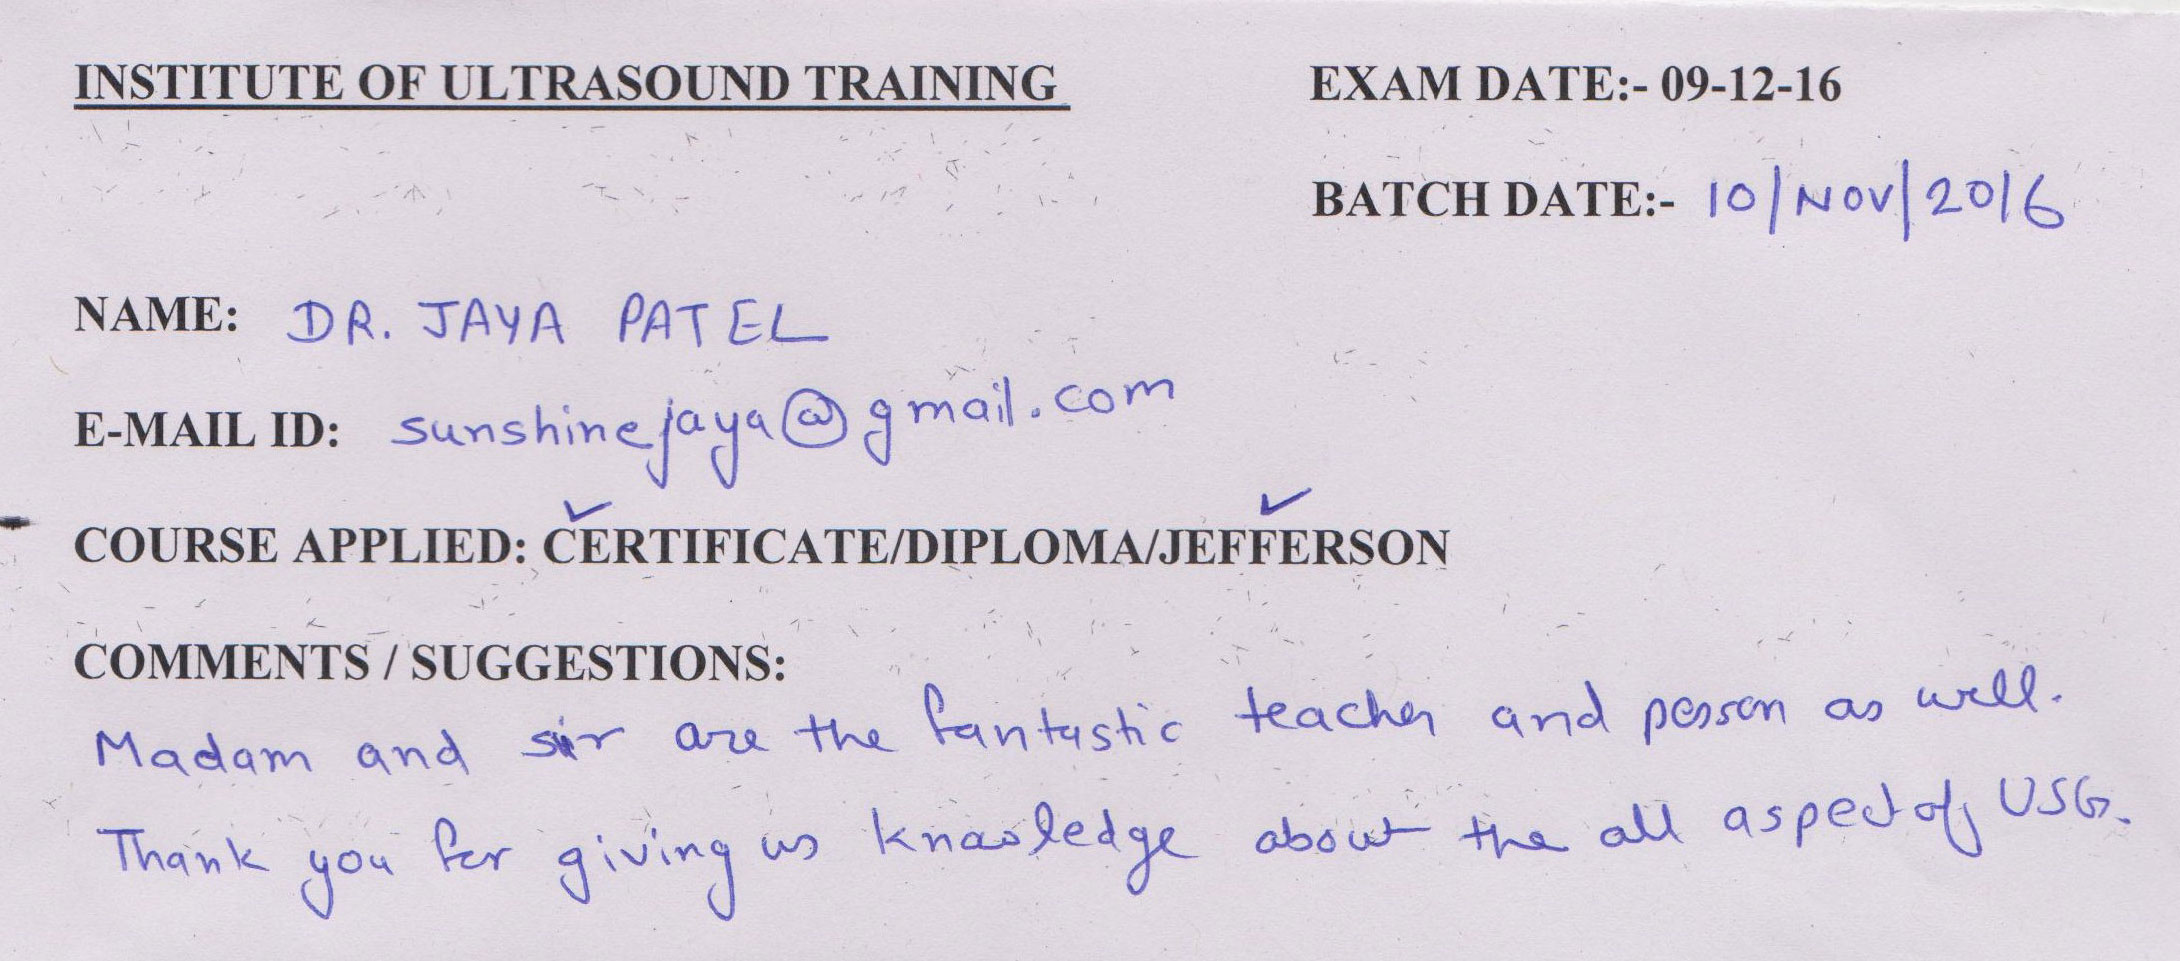 INSTITUTE OF ULTRASOUND TRAINING EXAM DATE:- 09-12-16
BATCH DATE:- 10/NOV/2016
NAME: DR. JAYA PATEL
E-MAIL ID: sunshinejaya@gmail.com
COURSE APPLIED: CERTIFICATE/DIPLOMA/JEFFERSON
COMMENTS / SUGGESTIONS:
Madam and sir are the fantastic teacher and person as well.
Thank you for giving us knowledge about the all aspect of USG.